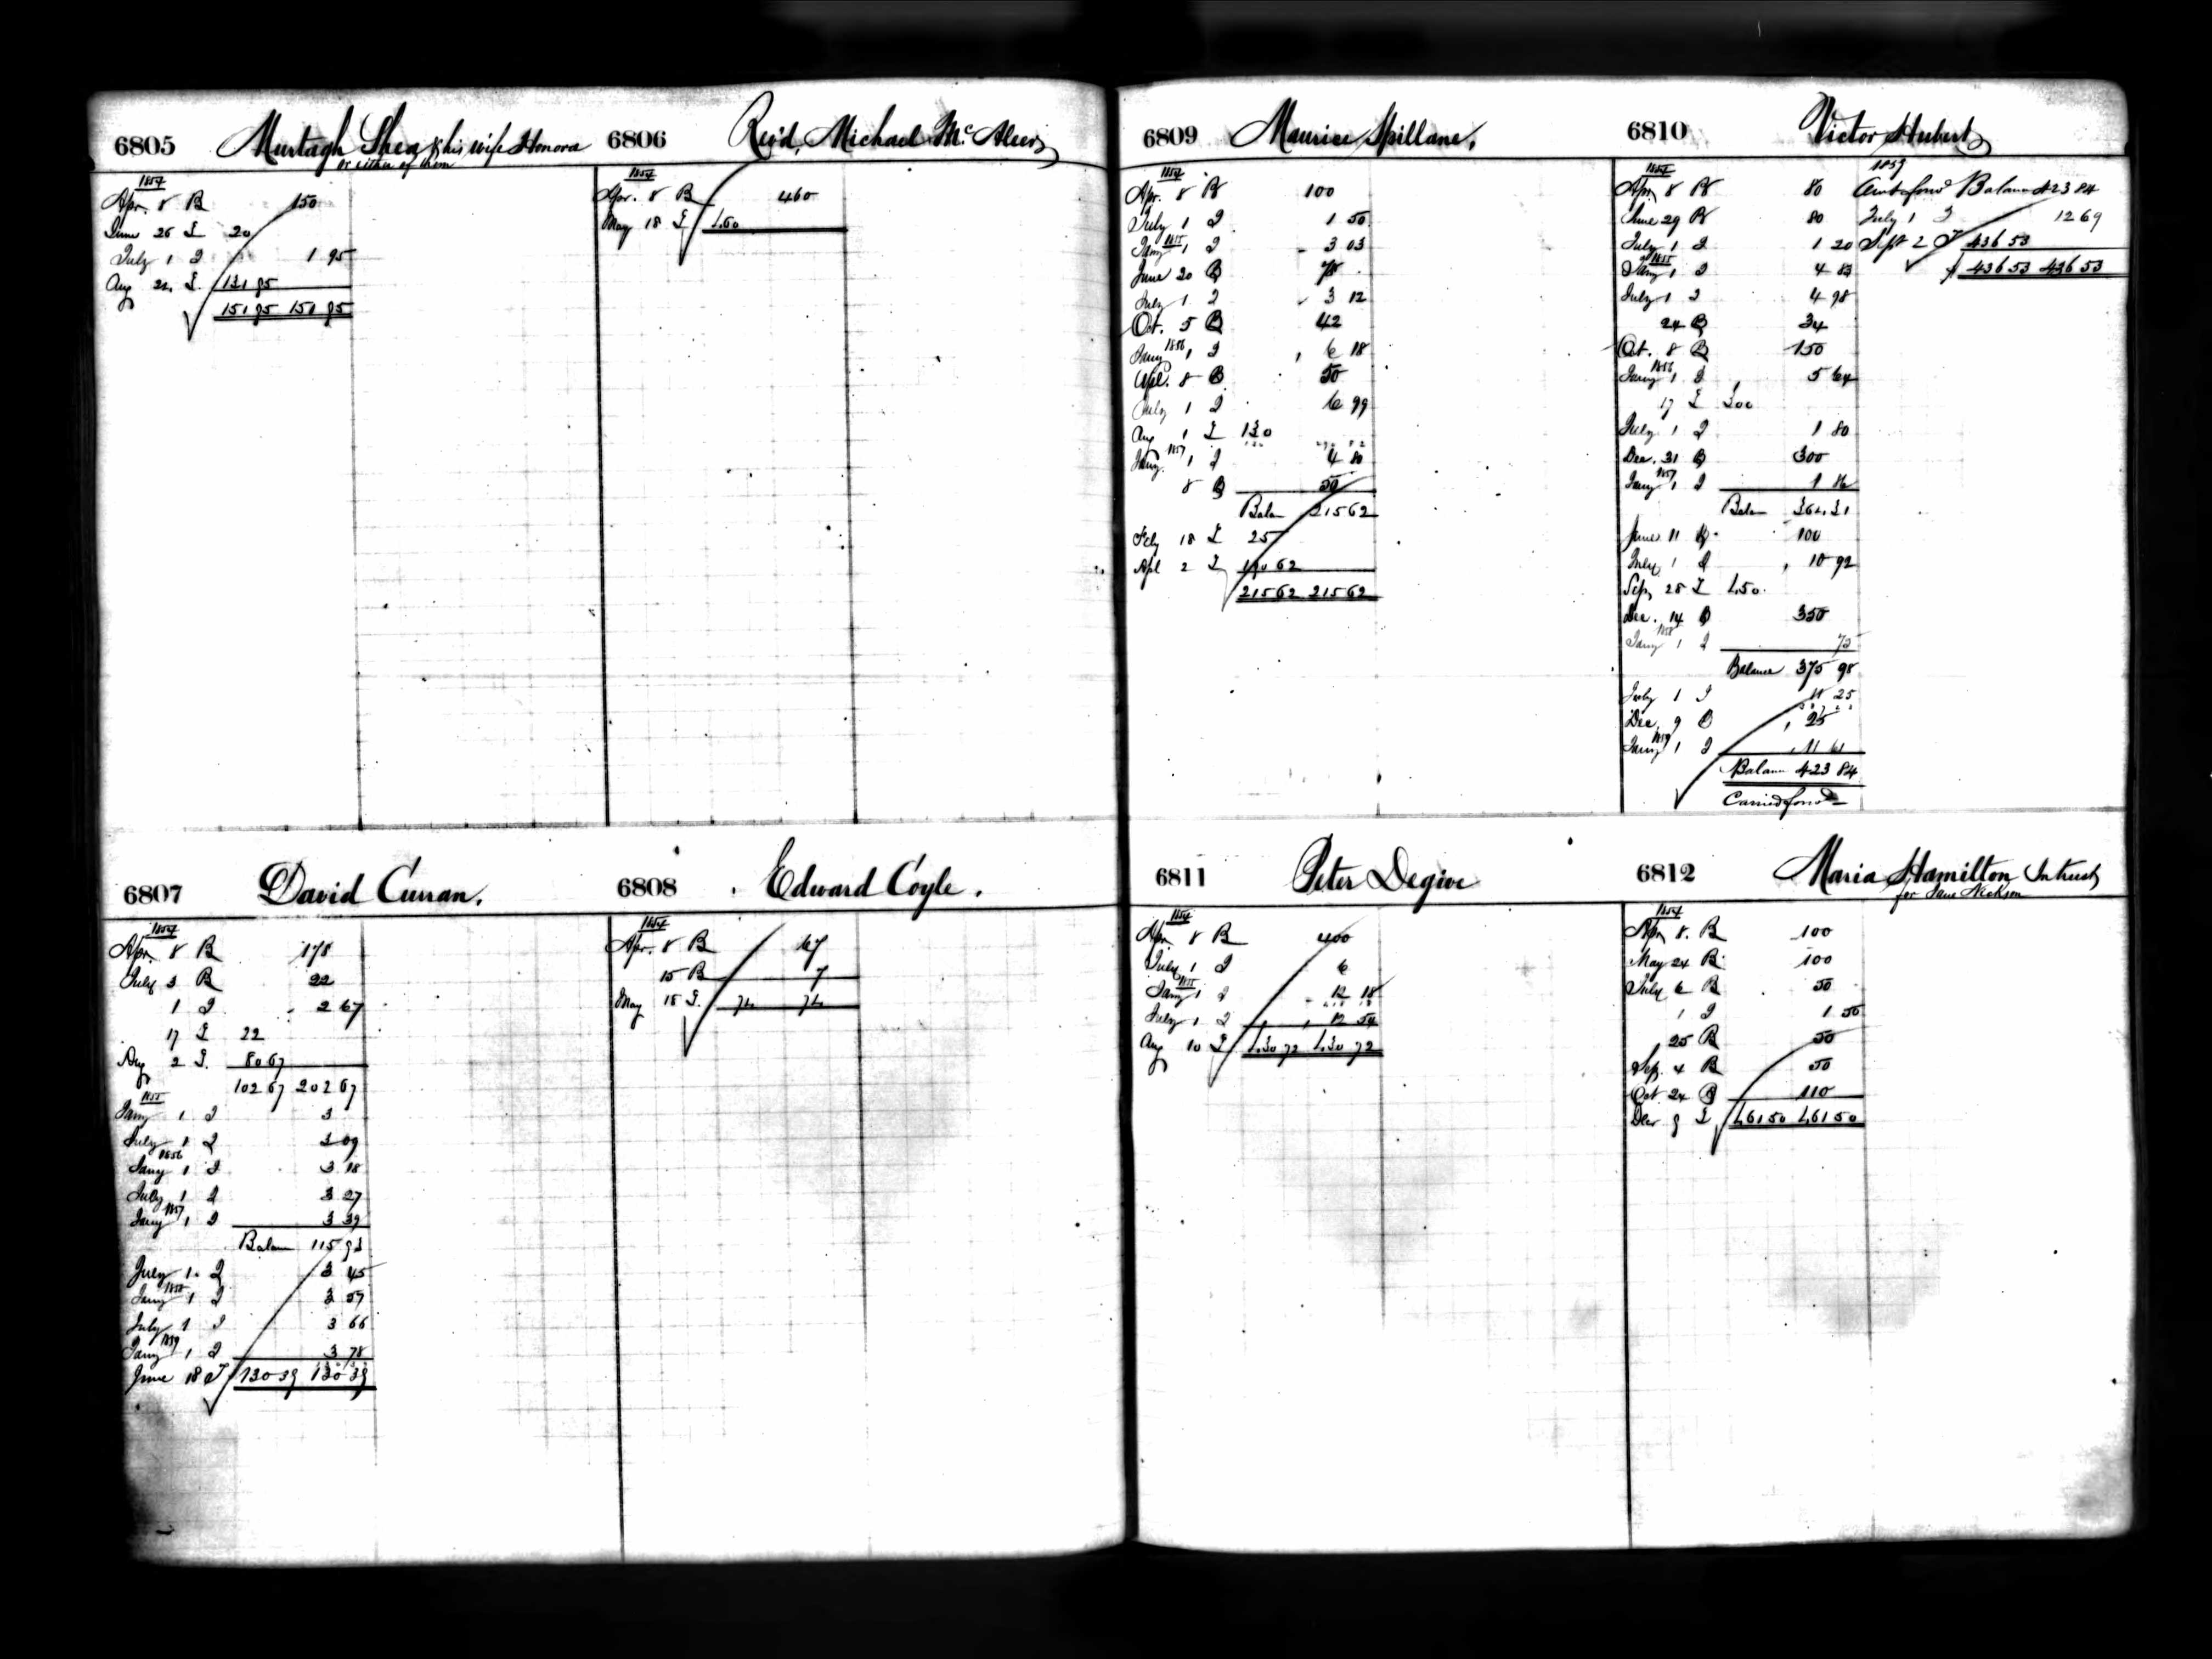 6805 Murtagh Shea & his wife Honora
or either of them
1854
Apr. 8 B 150
June 26 20
July 1 I 1 95
Aug 131 95
151 95 151 95
6806 Rev'd, Michael Mc Aleer
1854
Apr. 8 B 460
May 18 460
6807 David Curran.
1854
Apr. 8 B 178
July 3 B 22
1 I 2 67
17 22
Aug 2 80 67
102 67 202 67
1855
Jany 1 I 3
July 1 I 3 09
1856
Jany 1 I 3 18
July 1 I 3 27
1857
Jany 1 I 3 39
Balan 115 93
July 1 I 3 45
1858
Jany 1 I 3 57
July 1 I 3 66
1859
Jany 1 I 3 78
June 18 130 39 130 39
6808 Edward Coyle.
1854
Apr. 8 B 67
15 B 7
May 18 74 74
6809 Maurice Spillane.
1854
Apr. 8 B 100
July 1 I 1 50
1855
Jany 1 I 3 03
June 20 B
July 1 I 3 12
Oct. 5 B 42
1856
Jany 1 I 6 18
Apl. 8 B 50
July 1 I 6 99
Aug 1 130
1857
Jany 1 I 4 80
8 B 50
Balan 215 62
Feby 18 25
Apl 2 190 62
215 62 215 62
6810 Victor Hubert
1854
Apr. 8 B 80
June 29 B 80
July 1 I 1 20
1855
Jany 1 I 4 83
July 1 I 4 98
24 B 34
Oct. 8 B 150
1856
Jany 1 I 5 64
17 300
July 1 I 1 80
Dec. 31 B 300
1857
Jany 1 I 1 86
Balan 364 31
June 11 B 100
July 1 I 10 92
Sep, 28 450
Dec. 14 B 350
1858
Jany 1 I 75
Balance 375 98
July 1 I 11 25
Dec. 9 B 25
1859
Jany 1 I 11 61
Balan 423 84
Carried forwd
1859
Amt forwd Balan 423 84
July 1 I 12 69
Sept 2 436 53
436 53 436 53
6811 Peter Degive
1854
Apr 8 B 400
July 1 I 6
1855
Jany 1 I 12 18
July 1 I 12 54
Aug 10 430 72 430 72
6812 Maria Hamilton Intrust
for Jane
1854
Apr 8. B 100
May 24 B 100
July 6 B 50
1 I 1 50
25 B 50
Sep. 4 B 50
Oct 24 B 110
Decr 9 461 50 461 50